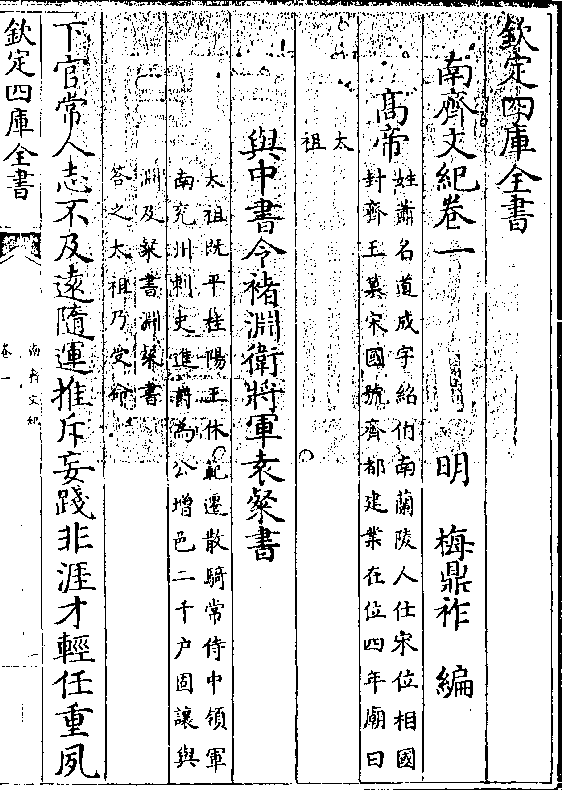 欽定四庫全書
南齊文紀卷一
明 梅鼎祚 編
高帝
姓蕭名道成字紹伯南蘭陵人仕宋位相國
封齊王簒宋國號齊都建業在位四年廟曰
太
祖
與中書令褚淵衛將軍袁粲書
太祖既平桂陽王休範遷散騎常侍中領軍
南兖州刺史進爵為公增邑二千户固讓與
淵及粲書淵粲書
荅之太祖乃受命
下官常人志不及遠隨運推斥妄踐非涯才輕任重夙
欽定四庫全書
南齊文紀
卷一